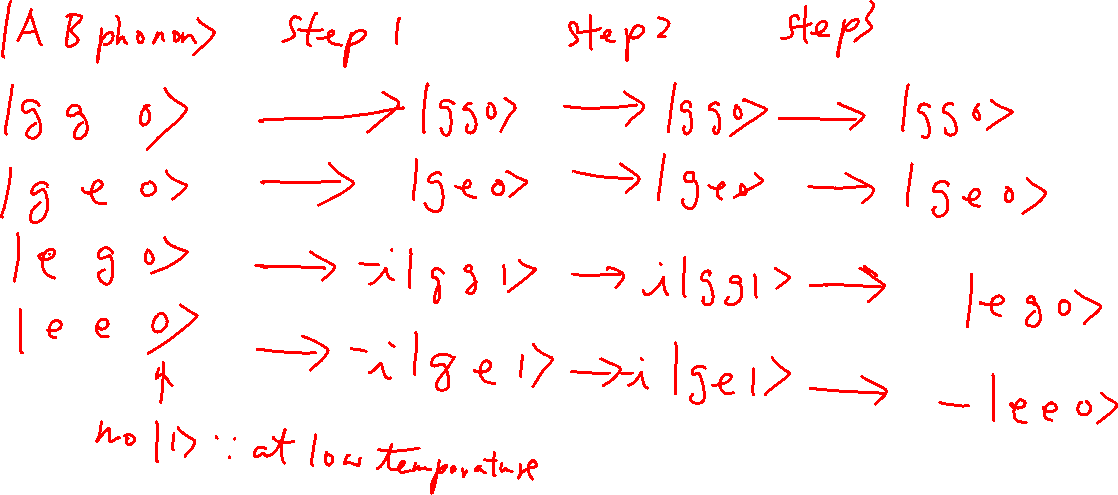 |A B phonon> step 1 step 2 step3
|g g 0> → |gg0> → |gg0> → |gg0>
|g e 0> → |ge0> → |ge0> → |ge0>
|e g 0> → -i|gg1> → i|gg1> → |eg0>
|e e 0> → -i|ge1> → -i|ge1> → -|ee0>
↑
no |1> ∵ at low temperature